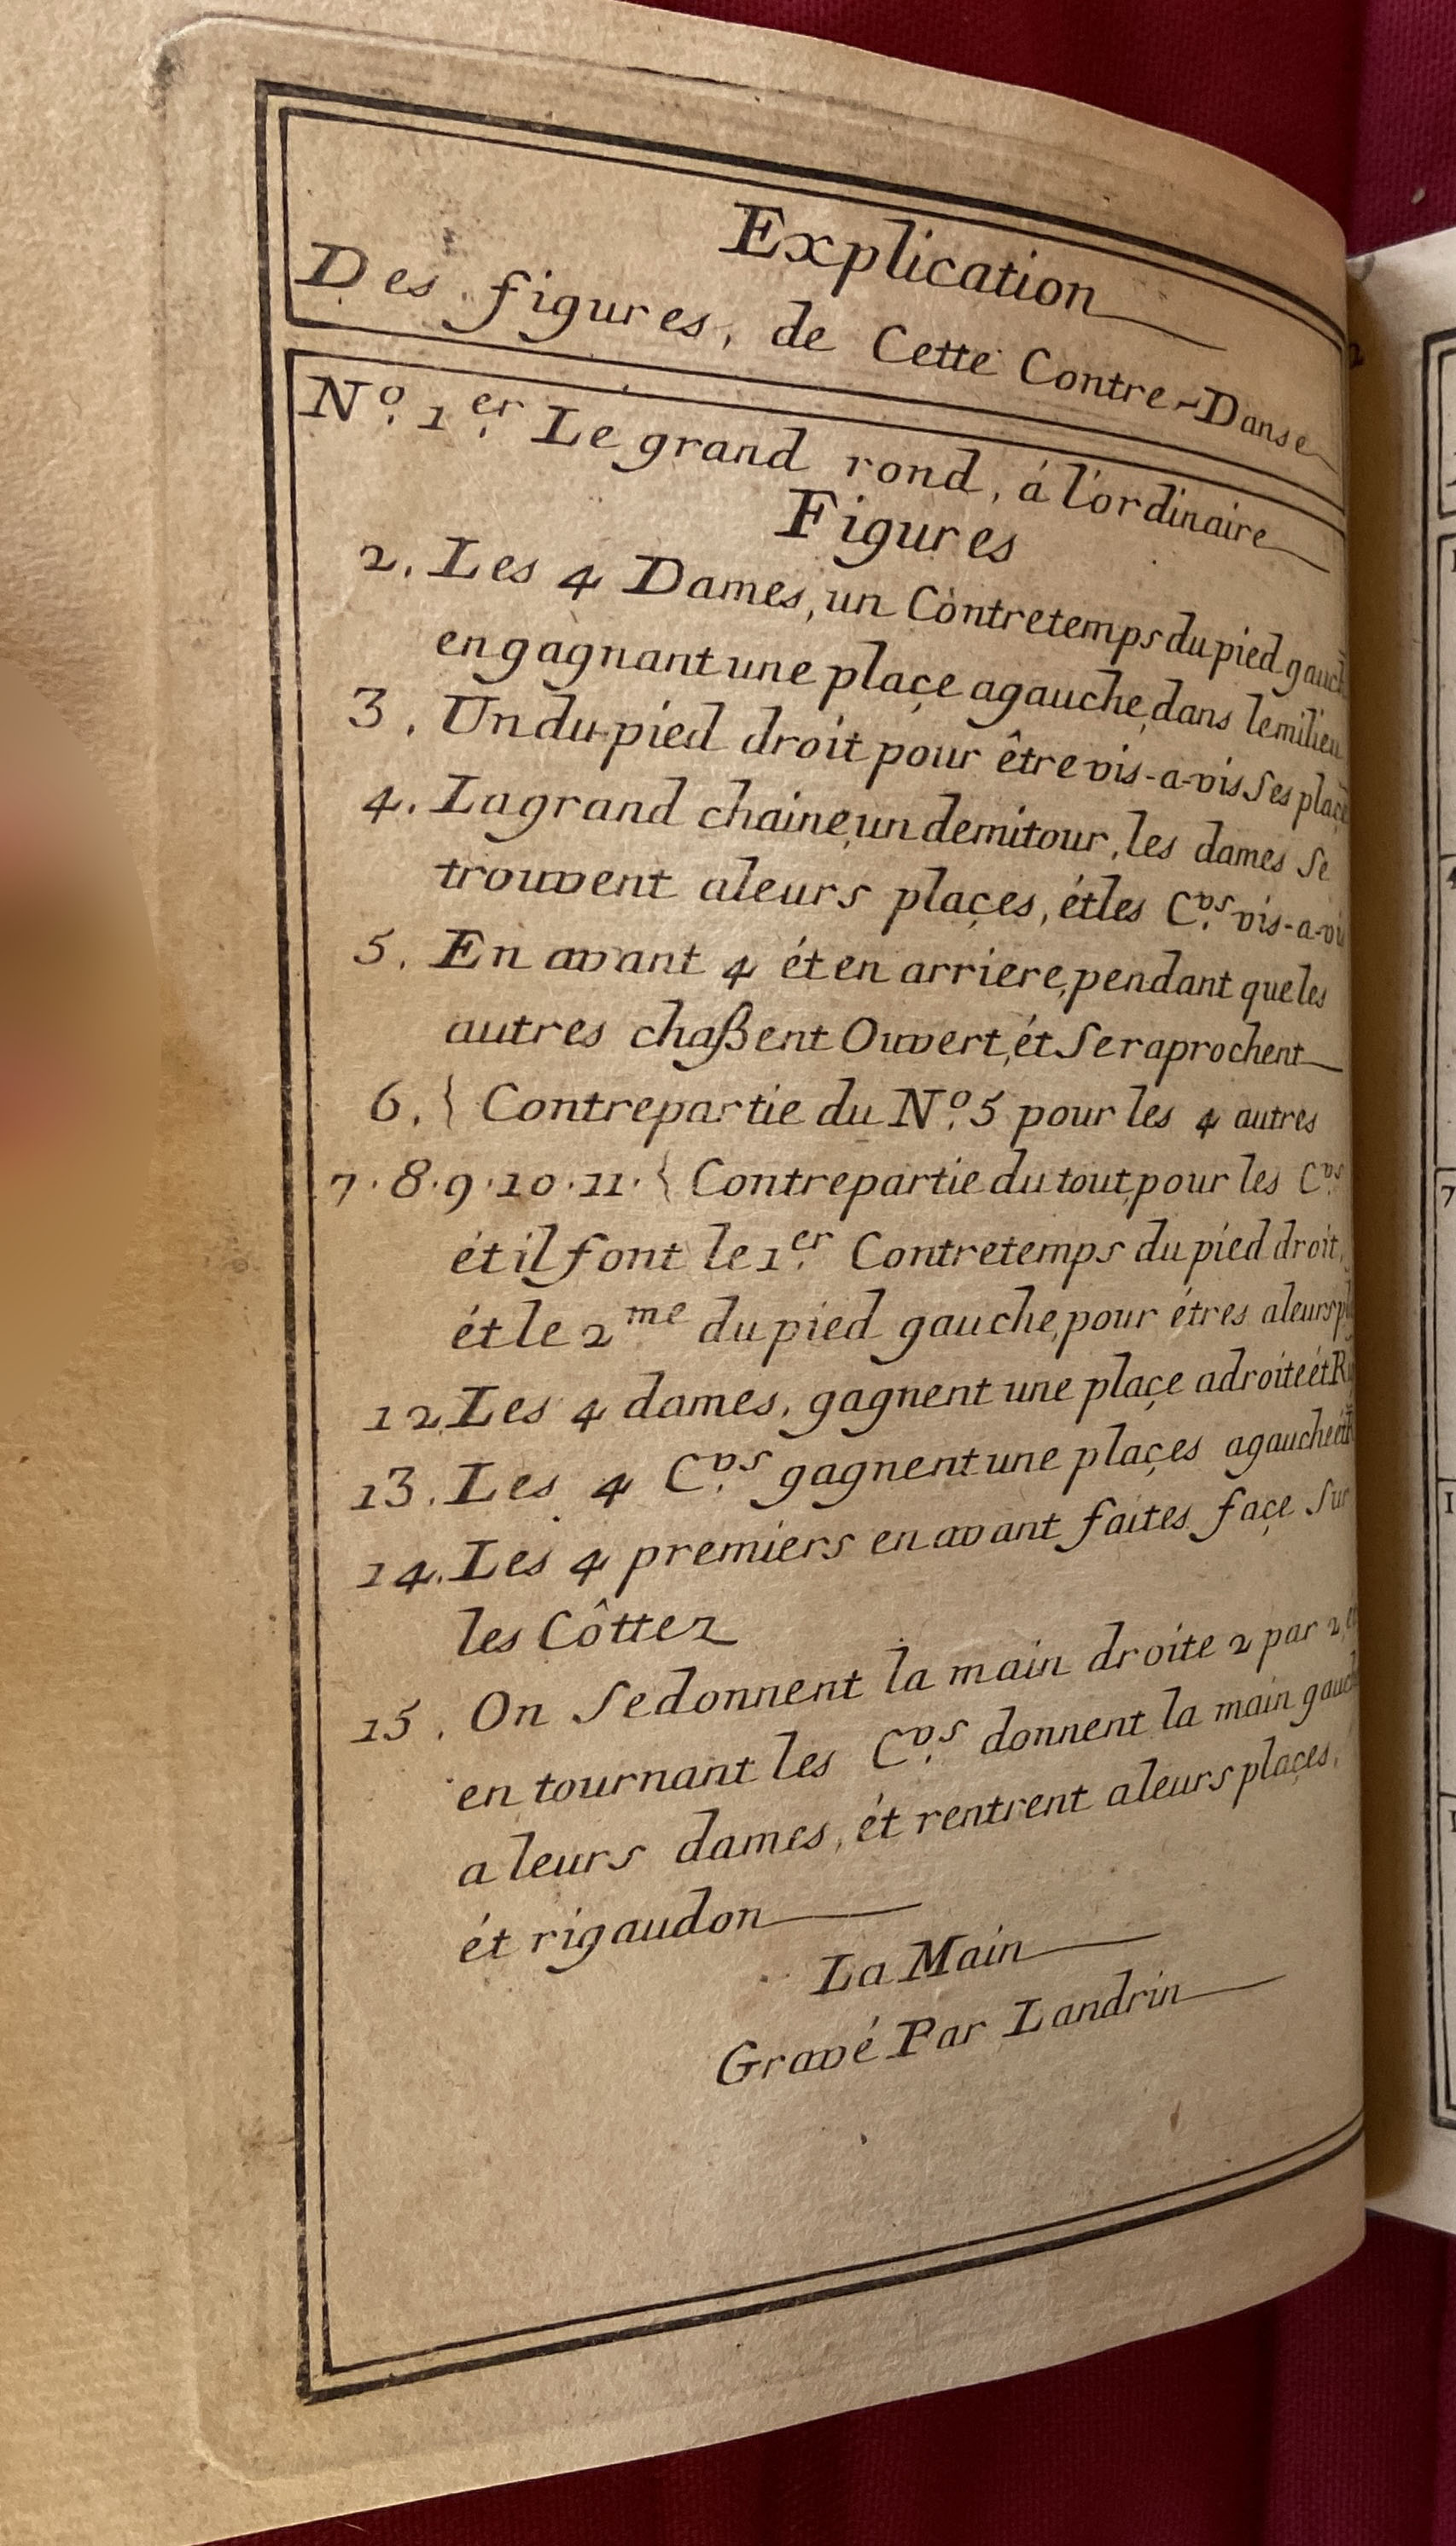 Explication
Des figures, de Cette Contre-Danse
Nº. 1er. Le grand rond, á l'ordinaire
Figures
2. Les 4 Dames, un Contretemps du pied
en gagnant une plaçe agauche, dans lemilieu
3. Un du pied droit pour être vis-a-vis ses
4. La grand chaine, un demitour, les dames se
trouvent aleurs plaçes, ét les C.vrs vis-a-
5. En avant 4 ét en arriere, pendant que les
autres chaßent Ouvert, ét se raprochent
6. { Contrepartie du Nº. 5 pour les 4 autres
7. 8. 9. 10. 11. { Contrepartie du tout, pour les C.vrs
ét il font le 1er. Contretemps du pied droit,
ét le 2me du pied gauche, pour étres aleurs
12. Les 4 dames, gagnent une plaçe adroite ét
13. Les 4 C.vrs gagnent une plaçes agauche
14. Les 4 premiers en avant faites façe sur
les Côttez
15. On se donnent la main droite 2 par 2,
en tournant les C.vrs donnent la main
a leurs dames, ét rentrent aleurs plaçes,
ét rigaudon
La Main
Gravé Par Landrin